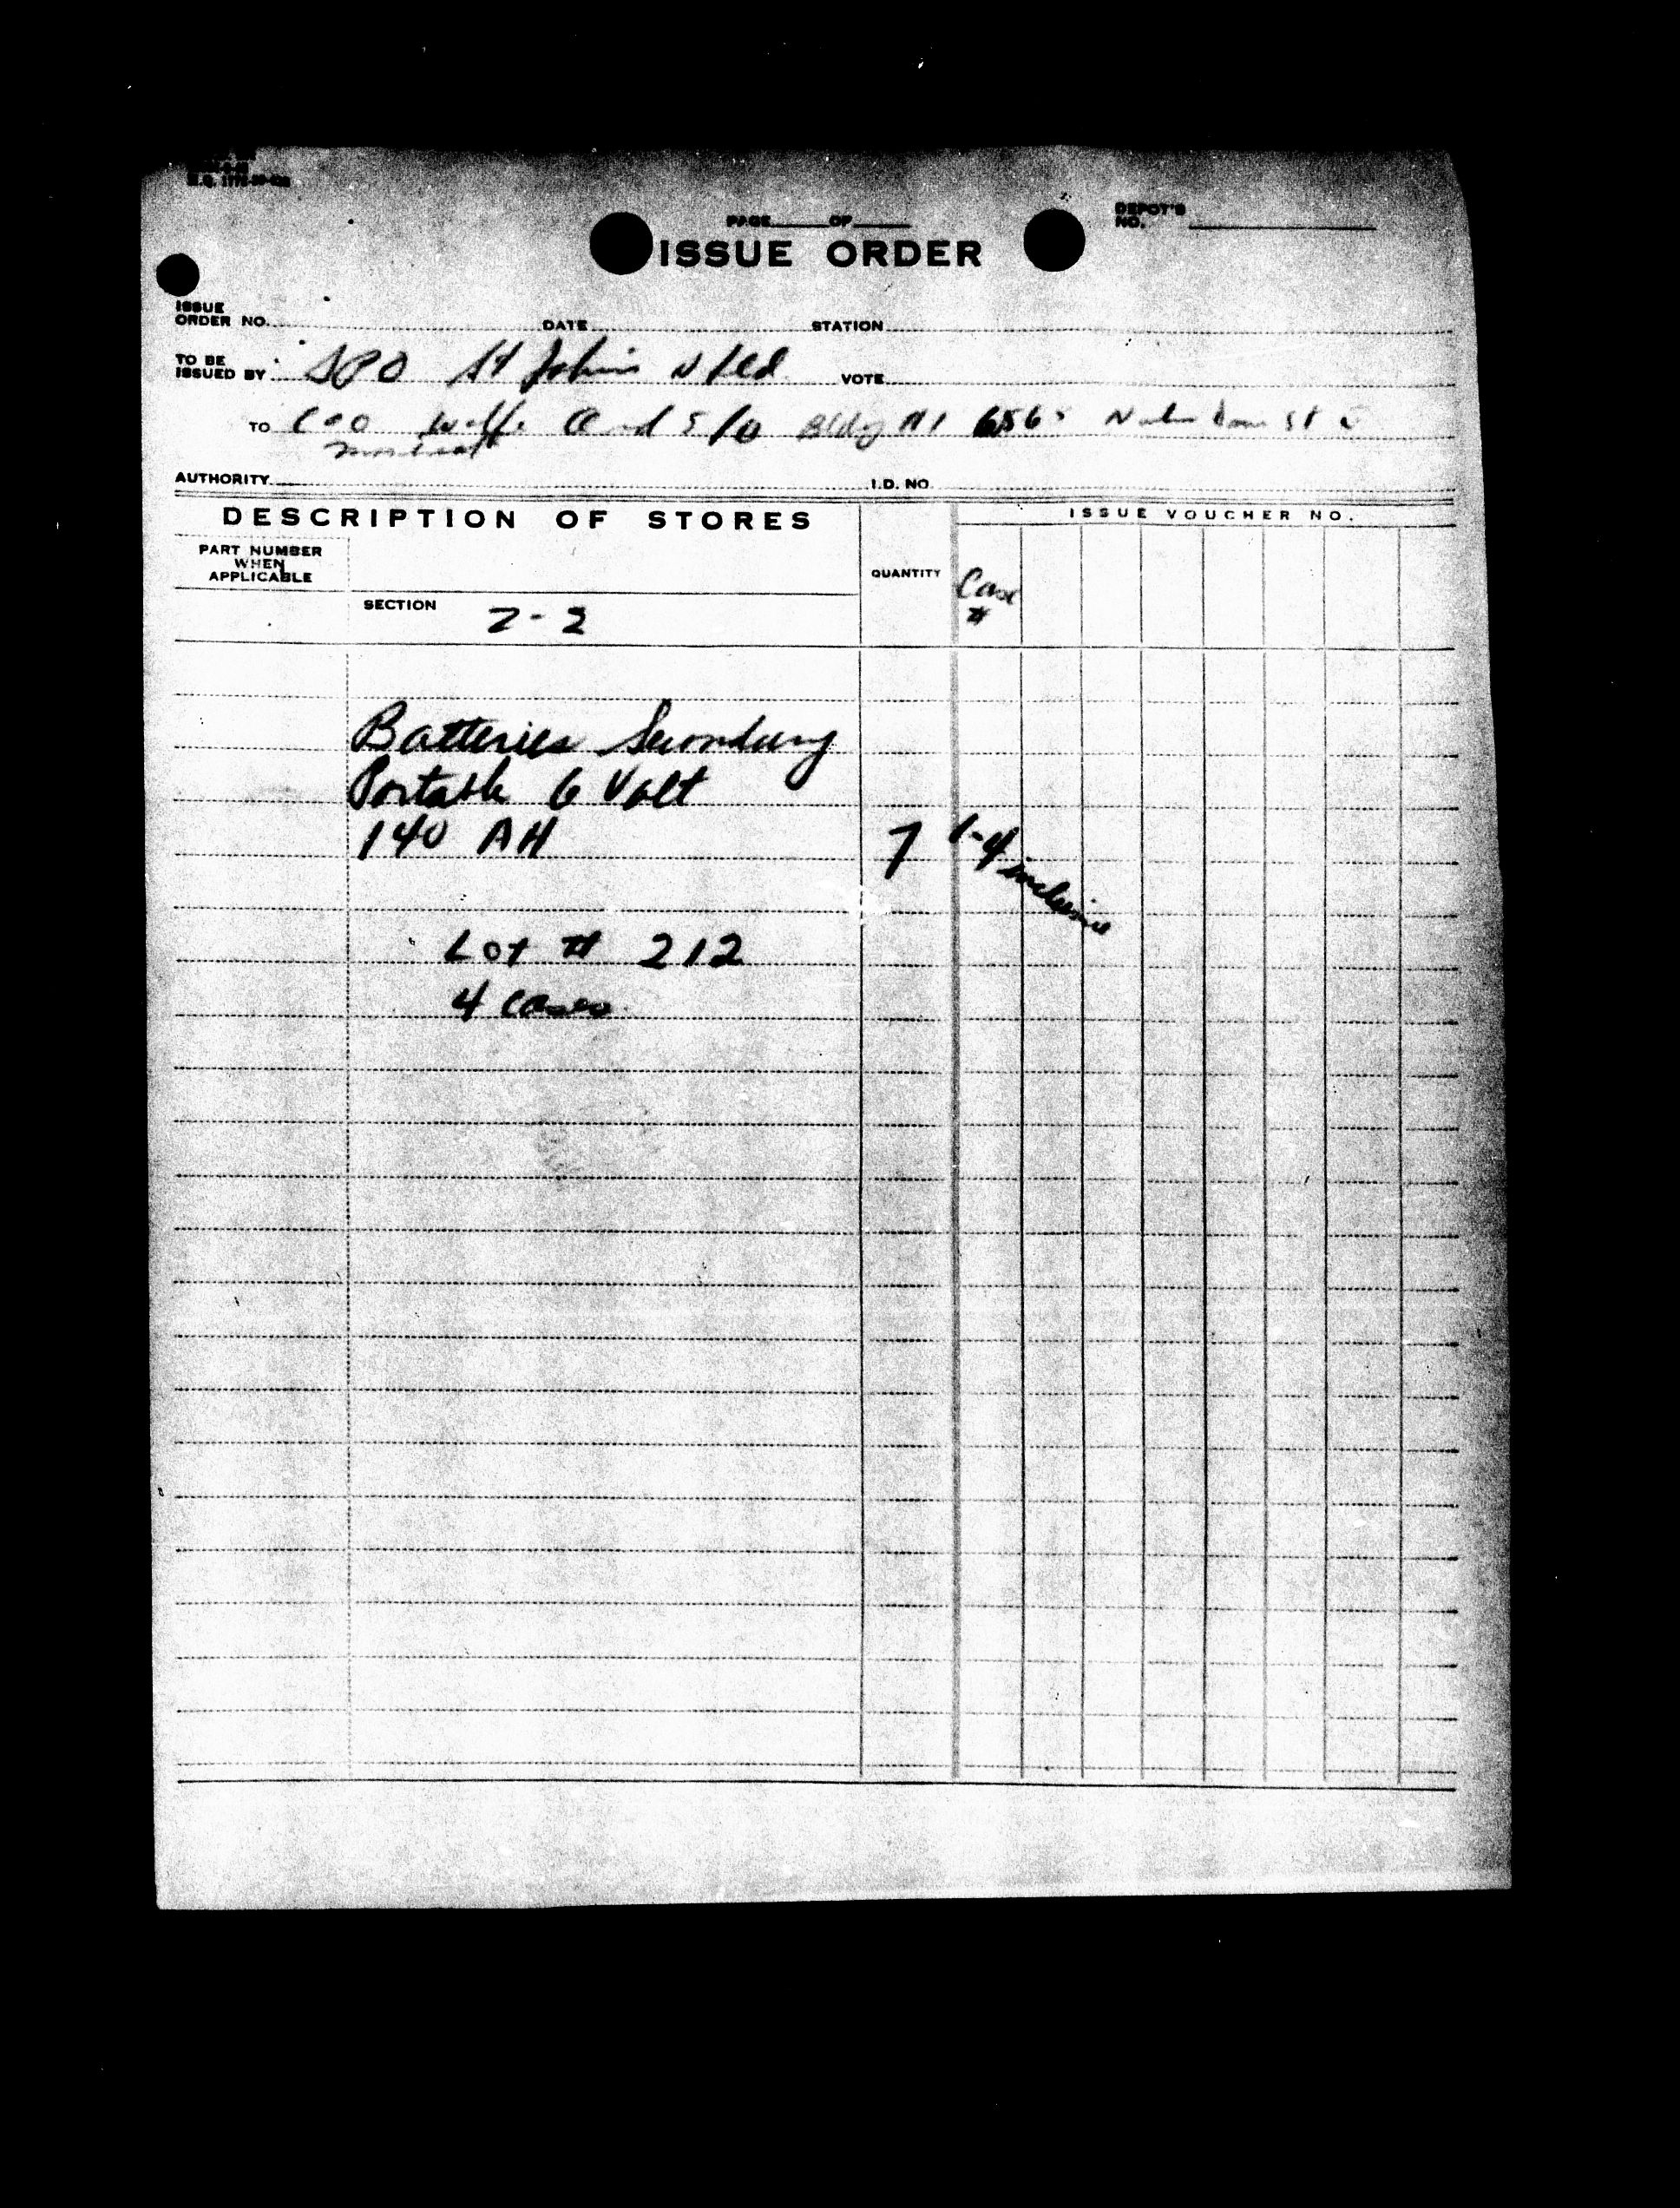 PAGE OF
DEPOT'S NO.
ISSUE ORDER
ISSUE ORDER NO. DATE STATION
TO BE ISSUED BY St John's Nfld VOTE
TO Bldg 
Montreal
AUTHORITY I.D. NO.
DESCRIPTION OF STORES
ISSUE VOUCHER NO.
PART NUMBER
WHEN
APPLICABLE
QUANTITY
Case
#
SECTION
Batteries Secondary
Portable 6 Volt
140 AH 7 1-4 inclusive
Lot # 212
4 cases